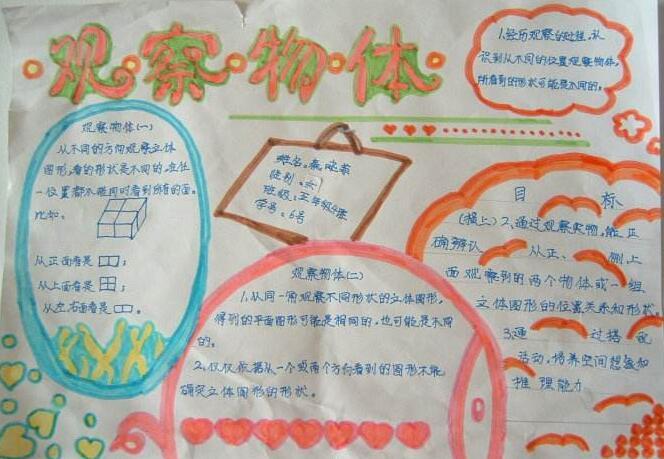 观察物体
1.经历观察的过程，认
识到从不同的位置观察物体，
所看到的形状可能是不同的。
观察物体(一)
从不同的方向观察立体
图形，看的形状是不同的，在任
一位置都不能同时看到所有的面。
比如。
从正面看是
从上面看是
从左右面看是
姓名：
性别：
班级：五年级4班
学号：6号
观察物体(二)
1、从同一角观察不同形状的立体图形，
得到的平面图形可能是相同的，也可能是不同
的。
2、仅仅依据从一个或两个方向看到的图形不能
确定立体图形的形状。
目 标
(接上)2、通过观察实物，能正
确辨认 从正、侧上
面观察到的两个物体或一组
立体图形的位置关系和形状。
3.通 过搭
活动，培养空间想象和
推理能力